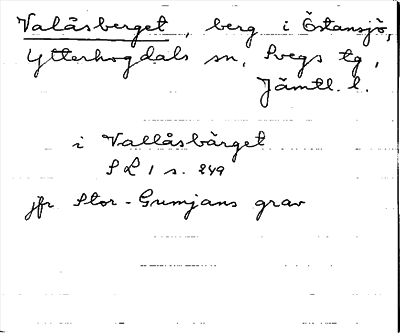 Valåsberget, berg i Östansjö,
Ytterhogdals sn, Svegs tg,
Jämtl. l.
i Vallåsbärget
SL 1 s. 249
jfr Stor-Gumjans grav